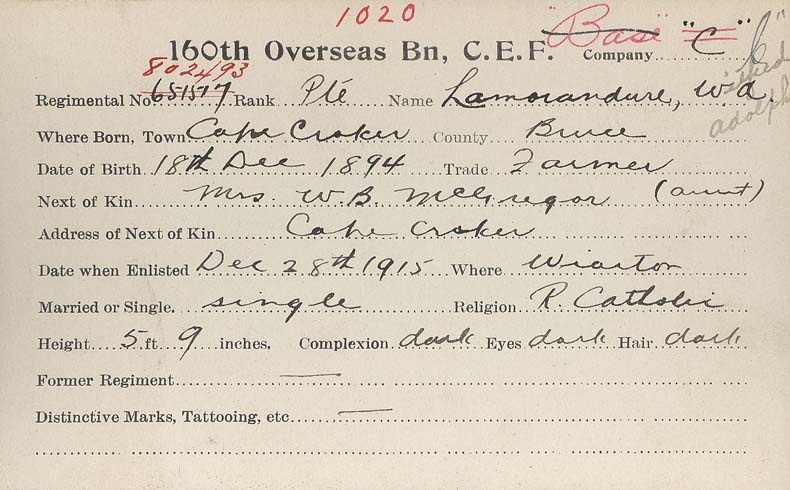 1020
160th Overseas Bn, C.E.F. "Base" Company "C"
802493
Regimental No. 651517 Rank Pte Name Lamorandure, W.d.
adolph
Where Born, Town Cape Croker County Bruce
Date of Birth 18th Dec 1894 Trade Farmer
Next of Kin Mrs. W.B. McGregor (aunt)
Address of Next of Kin Cape Croker
Date when Enlisted Dec 28th 1915 Where Wiarton
Married or Single. single Religion R. Catholic
Height 5 ft 9 inches. Complexion dark Eyes dark Hair dark
Former Regiment —
Distinctive Marks, Tattooing, etc —